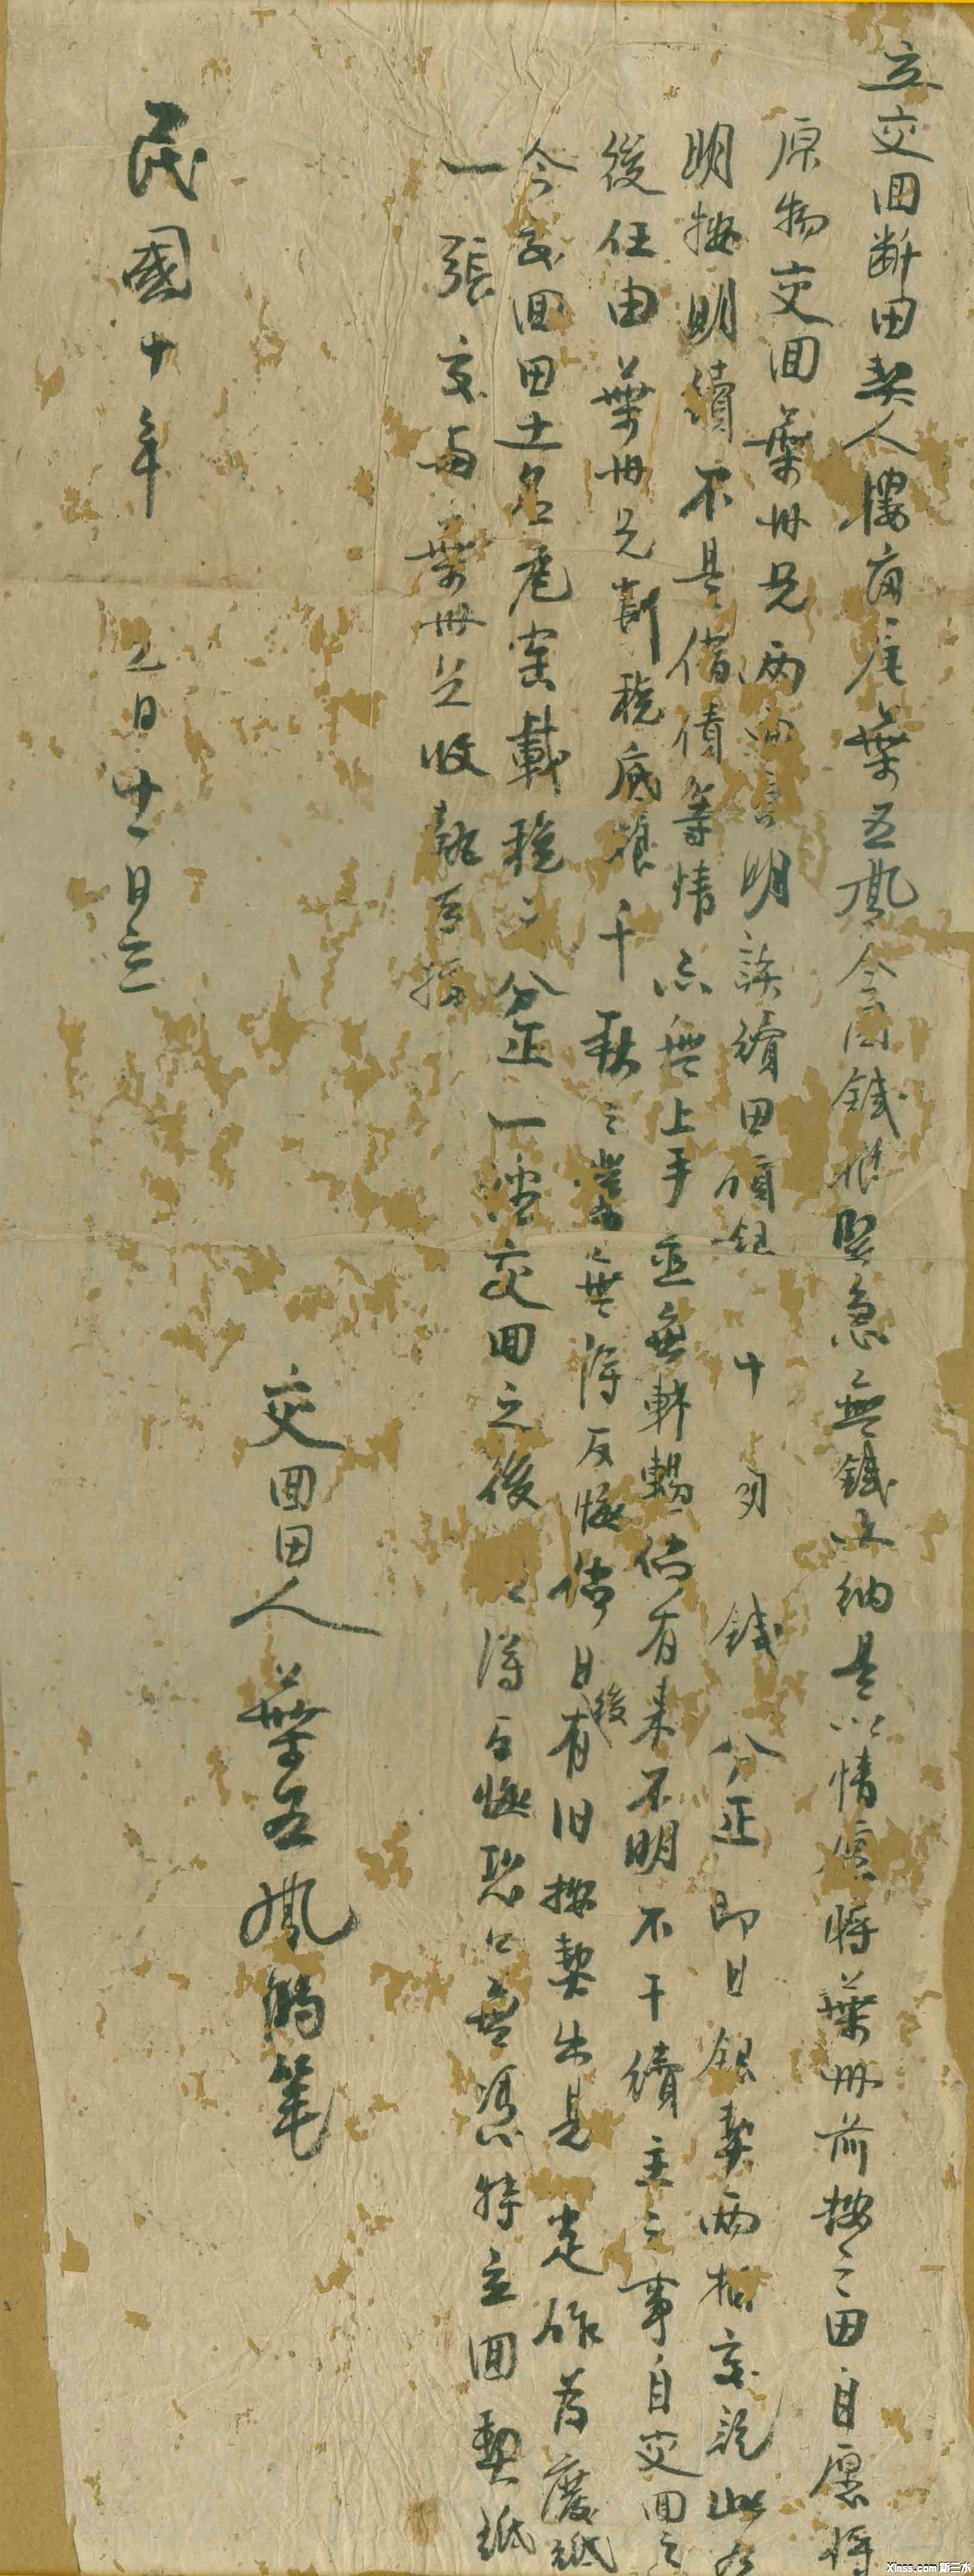 立交回断田契人㙟　葉五鳳今因錢粮緊急無錢上納是以情愿將葉卅前按之田自愿將
原物交回葉卅兄兩面言明該續田價銀十 兩 錢 分正即日銀契兩相交訖此乃
明按明續不是借債等情亦無上手並無轇轕倘有来不明不干續主之事自交回之
後任由葉卅兄割税底粮千秋之業無得反悔倘日後有旧按契出見 作為廢紙
今交回田土名 窰載税二分正一 交回之後 得反悔恐口無憑特立回契紙
一張交與葉卅兄收執為據
民國十年 月廿一日立
交回田人葉五鳳的笔
Xinss.com 新三水